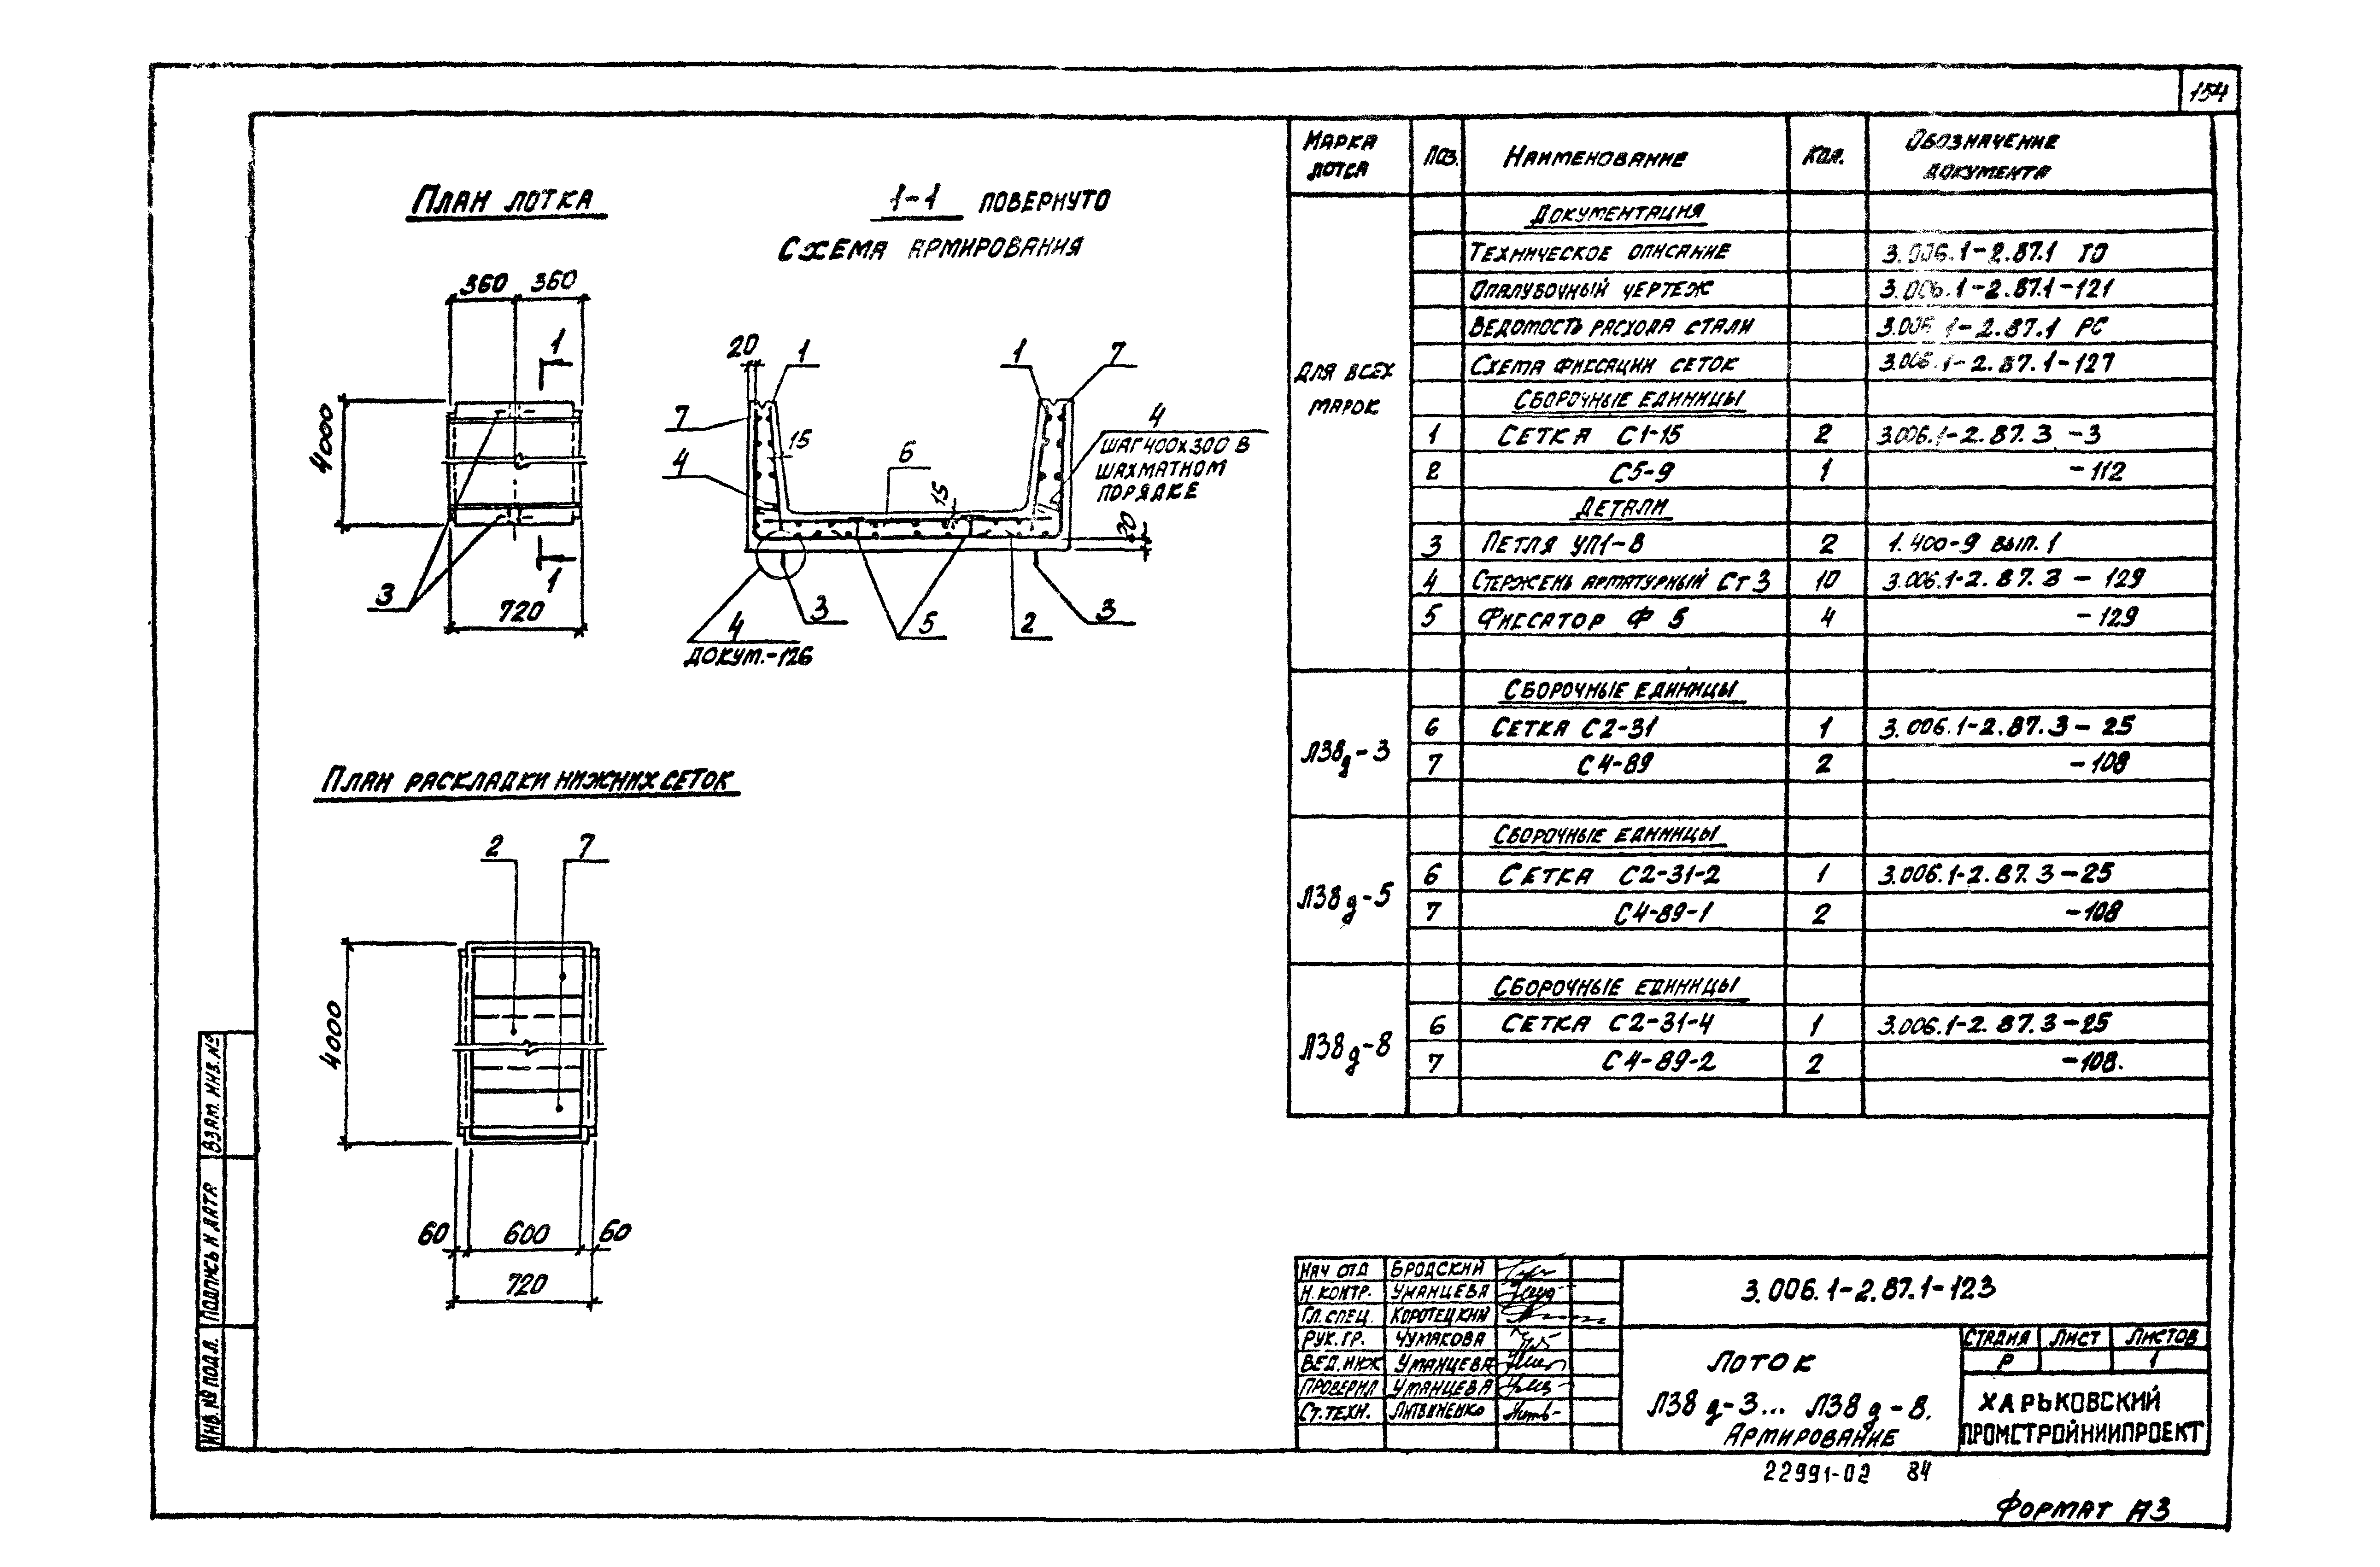 154
План лотка
360 360
1
4000
3
720
1
1-1 повернуто
Схема армирования
20 1 1 7
7 15 6 15 4
4 шаг 400х300 в
шахматном
порядке
20
3 5 2 3
4
докум.-126
План раскладки нижних сеток
2 7
4000
60 600 60
720
Марка лотка Поз. Наименование Кол. Обозначение документа
Для всех марок
Документация
Техническое описание 3.006.1-2.87.1 ТО
Опалубочный чертеж 3.006.1-2.87.1-121
Ведомость расхода стали 3.006.1-2.87.1 РС
Схема фиксации сеток 3.006.1-2.87.1-127
Сборочные единицы
1 Сетка С1-15 2 3.006.1-2.87.3-3
2 С5-9 1 -112
Детали
3 Петля УП1-8 2 1.400-9 вып.1
4 Стержень арматурный Ст 3 10 3.006.1-2.87.3-129
5 Фиксатор Ф 5 4 -129
Л38д-3
Сборочные единицы
6 Сетка С2-31 1 3.006.1-2.87.3-25
7 С4-89 2 -108
Л38д-5
Сборочные единицы
6 Сетка С2-31-2 1 3.006.1-2.87.3-25
7 С4-89-1 2 -108
Л38д-8
Сборочные единицы
6 Сетка С2-31-4 1 3.006.1-2.87.3-25
7 С4-89-2 2 -108.
Взам. инв. №
Подпись и дата
Инв. № подл.
Нач отд Бродский
Н. контр. Уманцева
Гл. спец. Коротецкий
Рук. гр. Чумакова
Вед. инж Уманцева
Проверил Уманцева
Ст. техн. Литвиненко
3.006.1-2.87.1-123
Лоток
Л38д-3... Л38д-8.
Армирование
Стадия Лист Листов
Р 1
Харьковский
Промстройниипроект
22991-02 84
Формат А3